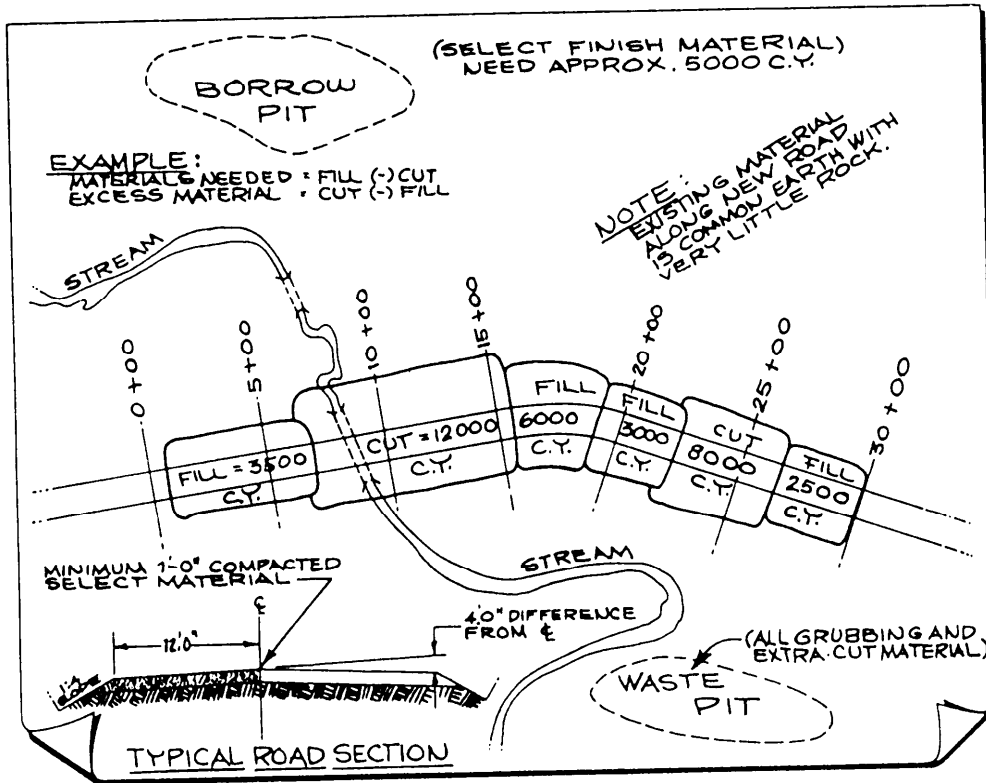 (SELECT FINISH MATERIAL)
NEED APPROX. 5000 C.Y.
BORROW
PIT
EXAMPLE:
MATERIALS NEEDED = FILL (-) CUT
EXCESS MATERIAL = CUT (-) FILL
NOTE:
EXISTING MATERIAL
ALONG NEW ROAD
IS COMMON EARTH WITH
VERY LITTLE ROCK.
STREAM
0+00
5+00
10+00
15+00
20+00
25+00
30+00
FILL = 3500
C.Y.
CUT = 12000
C.Y.
FILL
6000
C.Y.
FILL
3000
C.Y.
CUT
8000
C.Y.
FILL
2500
C.Y.
STREAM
MINIMUM 1'-0" COMPACTED
SELECT MATERIAL
℄
12'.0"
4'.0" DIFFERENCE
FROM ℄
SLOPE
(ALL GRUBBING AND
EXTRA CUT MATERIAL)
WASTE
PIT
TYPICAL ROAD SECTION